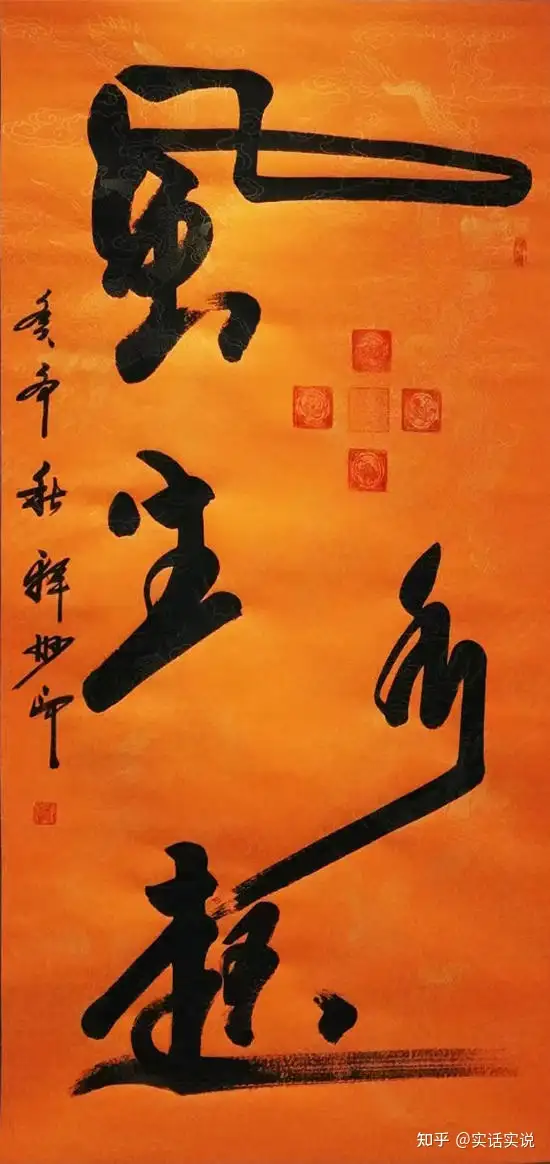 風生水起
癸卯秋 釋妙印
知乎 @实话实说